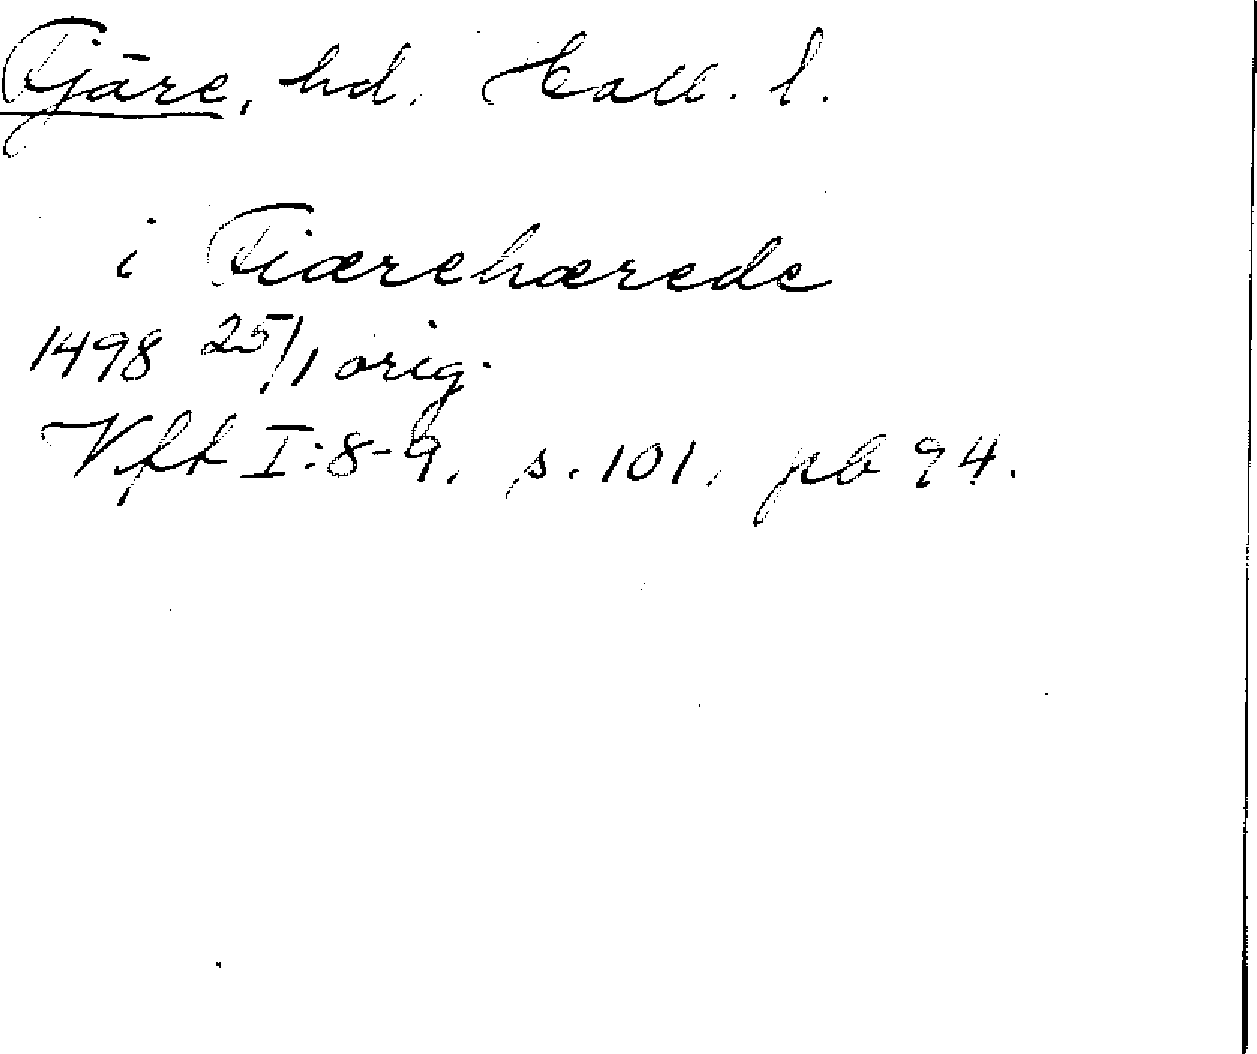 Fjäre, hd. Hall. l.
i Fiærehærede
1498 25/1 orig.
Vfft I:8-9, s. 101, pb 94.